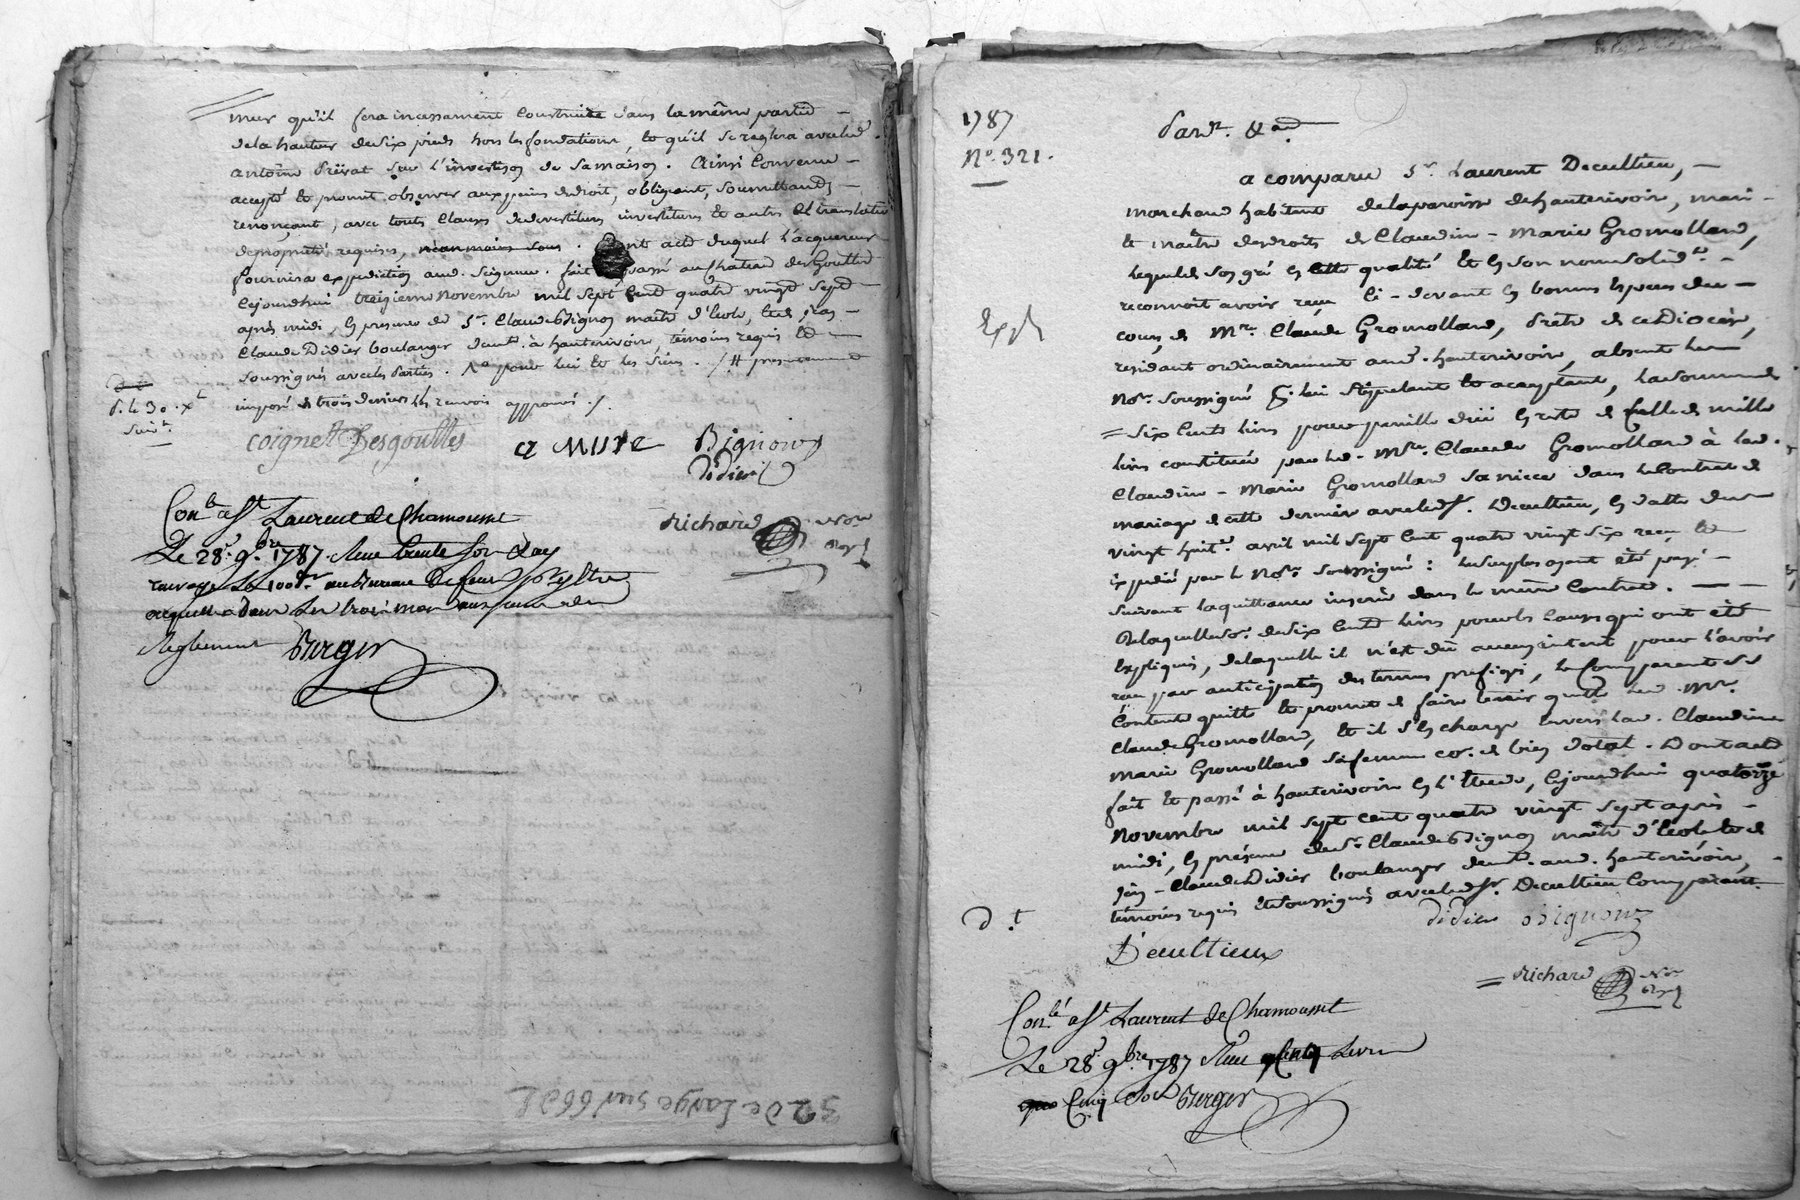 mur qu'il fera incessament construire dans la même partie
de la hauteur de six pieds hors les fondations, et qu'il se reglera avec led.
antoine sur l'investison de sa maison. Ainsi Convenu
accepté et promis observer aux peines de droit, obligeant, soumettant
renonçant, avec toutes Clauses de devestitures investitures et autres translatives
de propriété requises, Dont acte duquel l'acquereur
fournira expedition aud. Seigneur. fait passé au Chateau des Gouttes
Cejourdhui treizieme Novembre mil sept Cent quatre vingt sept
après midi, en presence de Sr. Claude Bignon maitre d'école, et de jean
Claude Didier boulanger demt. à hauterivoire, témoins requis et
soussignés avec les parties. pour lui et les siens. /# presentement
imposé de trois deniers renvois approuvés ./.
Coignet Desgouttes a MURE Bignon
Didier
Richard Nore
Royl
Conlé. à St. Laurent de Chamousset
Le 28. 9bre 1787. Reçu trente sols Lay
renvoyé Le 100e. au Bureau de
acquitté dans Les trois mois aux peines du
Reglement Berger
32 de Large sur
1787
No. 321.
Pardt. &a
a comparu Sr. Laurent Decultieu,
marchand habitant de la paroisse de hauterivoire, mari
et maitre des droits de Claudine-Marie Gromolland,
lequel de son gré en cette qualité et en son nom solide.
reconnoit avoir reçu ci-devant en bonnes especes du
cours, de Mre. Claude Gromolland, Pretre de ce Diocèse,
residant ordinairement aud. hauterivoire, absent led.
Nore. soussigné pr. lui stipulant et acceptant, la somme de
= six Cents livres pour pareille due en reste de celle de mille
livres constituée par led. Mre. Claude Gromolland à lad.
Claudine-Marie Gromolland sa niece dans le Contrat de
mariage de cette derniere avec led. Sr. Decultieu, en datte du
vingt huit. avril mil sept cent quatre vingt six reçu et
expedié par le Nore. soussigné : le surplus ayant été payé
suivant la quittance inserée dans le même Contrat.
De laquelle so. de six Cents livres pour les causes qui ont été
expliquées, de laquelle il n'est dû aucun interet pour l'avoir
reçu par anticipation des termes prefigés, le Comparant se
Contente quitte et promet de faire tenir quitte led. Mre.
Claude Gromolland, et il s'en charge envers lad. Claudine
Marie Gromolland sa femme co. de bien dotal. Dont acte
fait et passé à hauterivoire en l'Etude, Cejourdhui quatorze
Novembre mil sept cent quatre vingt sept après
midi, en présence de Sr. Claude Bignon maitre d'école et de
jean-Claude Didier boulanger demt. aud. hauterivoire,
témoins requis et soussignés avec led. Sr. Decultieu Comparant.
Didier Bignon
Decultieux
Richard Nore
Royl
Conlé. à St Laurent de Chamousset
Le 28. 9bre 1787 Reçu Livres
Cinq Sols Berger